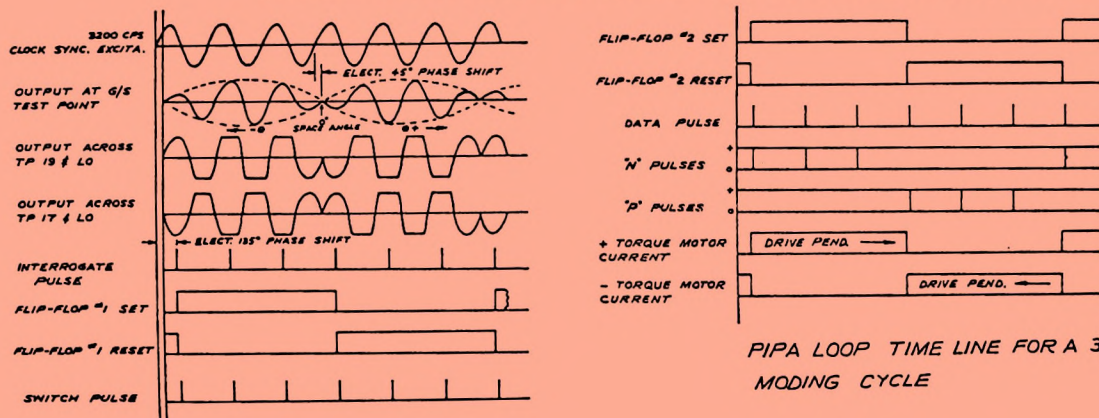 3200 CPS
CLOCK SYNC. EXCITA.
ELECT. 45° PHASE SHIFT
OUTPUT AT G/S
TEST POINT
0°
- θ
SPACE ANGLE
θ +
OUTPUT ACROSS
TP 19 & LO
OUTPUT ACROSS
TP 17 & LO
ELECT. 135° PHASE SHIFT
INTERROGATE
PULSE
FLIP-FLOP #1 SET
FLIP-FLOP #1 RESET
SWITCH PULSE
FLIP-FLOP #2 SET
FLIP-FLOP #2 RESET
DATA PULSE
+
"N" PULSES
0
+
"P" PULSES
0
+ TORQUE MOTOR
CURRENT
DRIVE PEND.
- TORQUE MOTOR
CURRENT
DRIVE PEND.
PIPA LOOP TIME LINE FOR A 3
MODING CYCLE